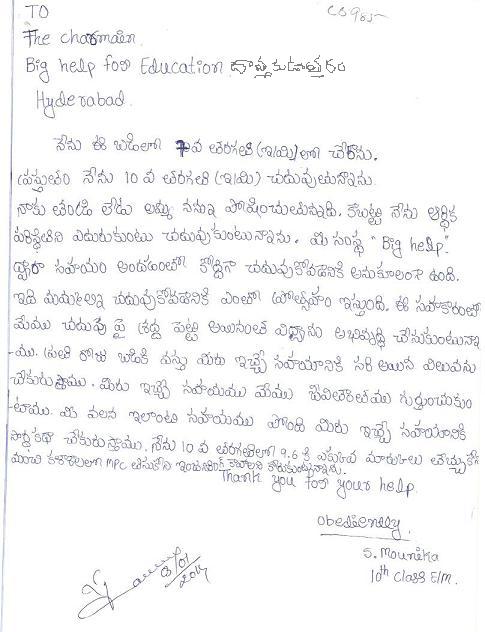 TO
The chairmain.
Big help for Education
Hyderabad.
నేను ఈ బడిలో 7వ తరగతి (ఇ/మి) లో చేరాను.
ప్రస్తుతం నేను 10 వ తరగతి (ఇ/మి) చదువుతున్నాను
నాకు తండ్రి లేడు అమ్మ నన్ను పోషించుతున్నది. కాబట్టి నేను ఆర్థిక
పరిస్థితిని ఎదురుకుంటు చదువుకుంటున్నాను. మీ సంస్థ "Big help"
ద్వారా సహాయం అందడంతో కొద్దిగా చదువుకోవడానికి అనుకూలంగా ఉంది.
ఇది మమ్మల్ని చదువుకోవడానికి ఎంతో ప్రోత్సాహం ఇస్తుంది. ఈ సహకారంతో
మేము చదువు పై శ్రద్ద పెట్టి అయినంత విద్యాను అభివృద్ధి చేసుకుంటున్నా
-ము. ప్రతి రోజు బడికి వస్తు మీరు ఇచ్చే సహాయానికి సరి అయిన విలువను
చేకురుస్తాము. మీరు ఇచ్చే సహాయము మేము జీవితాంతము గుర్తుంచుకుం
-టాము. మీ వలన ఇలాంటి సహాయము పొంది మీరు ఇచ్చే సహాయానికి
సార్థకథా చేకురుస్తాము. నేను 10 వ తరగతిలో 9.6 కి ఎక్కువ మార్కులు తెచ్చుకొని
మంచి కళాశాలలో MPC తీసుకొని ఇంజనీరింగ్ కావాలని కోరుకుంటున్నాను.
Thank you for your help.
obediently.
S. Mounika
10th class E/M.